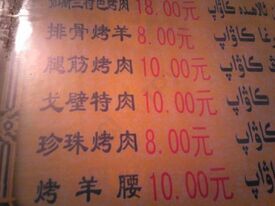 村巴烤肉 18.00元
排骨烤羊 8.00元
腿筋烤肉 10.00元 كاۋاپ
戈壁特肉 10.00元 كاۋاپ
珍珠烤肉 8.00元 كاۋاپ
烤羊腰 10.00元 كاۋاپ